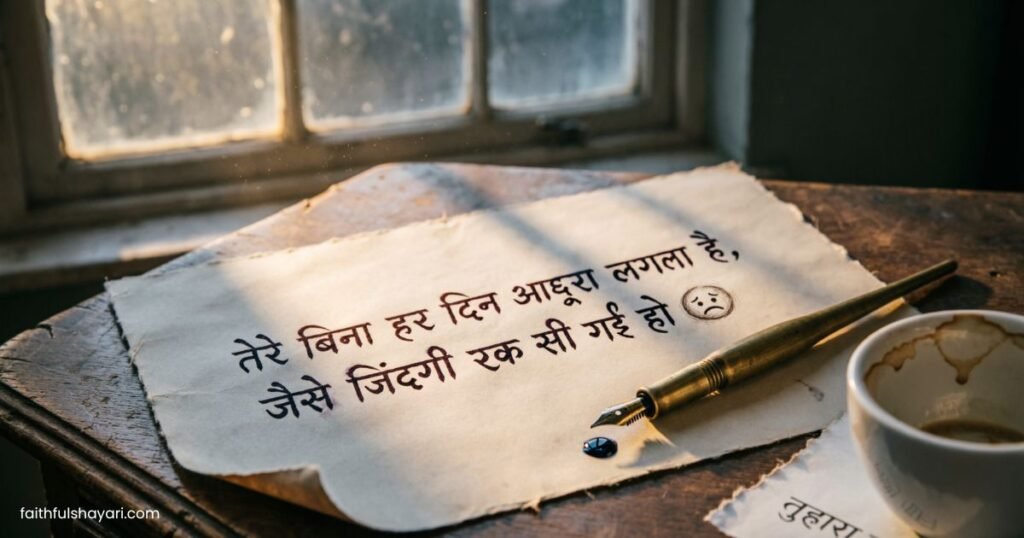 तेरे बिना हर दिन आद्दूरा लगला है,
जैसे जिंदगी रक सी गई हो
तुहारा
faithfulshayari.com